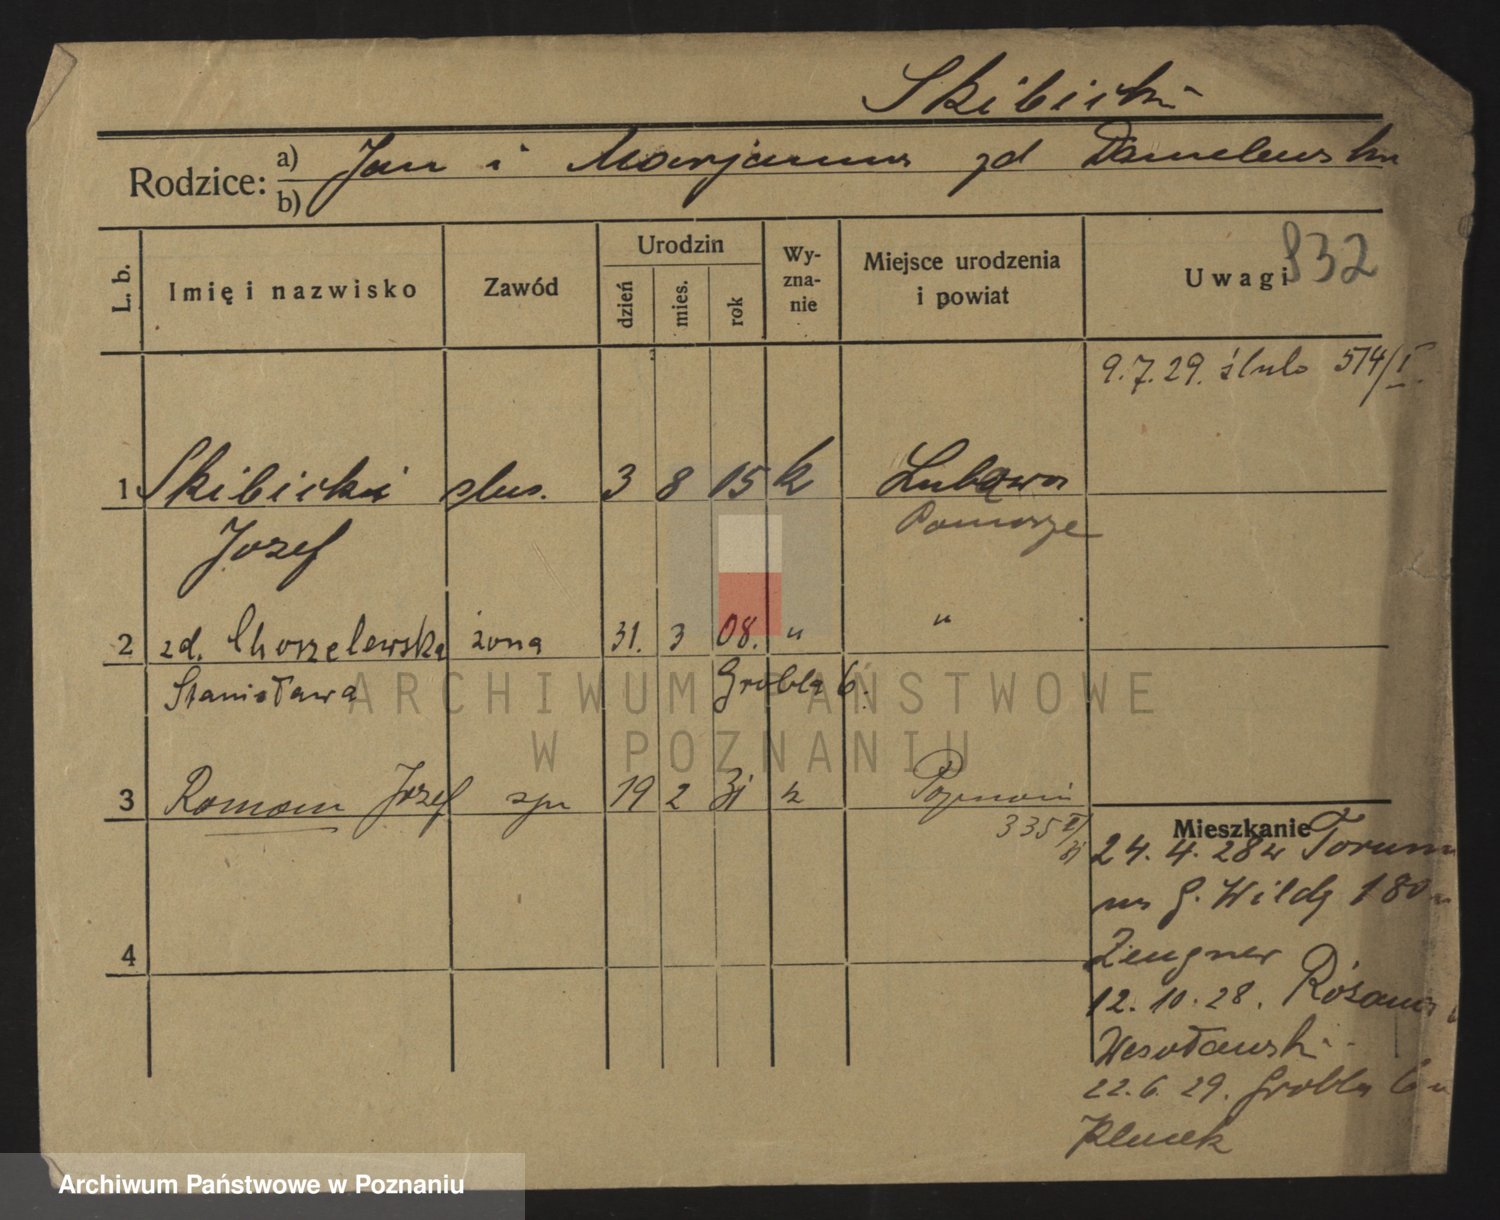 Skibicki
Rodzice: a) Jan i Marjanna zd Danielewska
b)
L. b. Imię i nazwisko Zawód Urodzin dzień mies. rok Wyznanie Miejsce urodzenia i powiat Uwagi 832
9.7.29. ślub 574/I
1 Skibicki ślus. 3 8 05 k Lubawa
Józef Pomorze
2 zd. Choszelewska żona 31. 3 08. " "
Stanisława Grobla 6.
3 Roman Józef syn 19 2 31 k Poznań
335 II/31
Mieszkanie
24. 4. 28 z Torunia
na G. Wildę 180 u
Zeugner
12. 10. 28. Różana
Wesołowski
22. 6. 29. Grobla 6 u
Klimek
4
ARCHIWUM PAŃSTWOWE
W POZNANIU
Archiwum Państwowe w Poznaniu